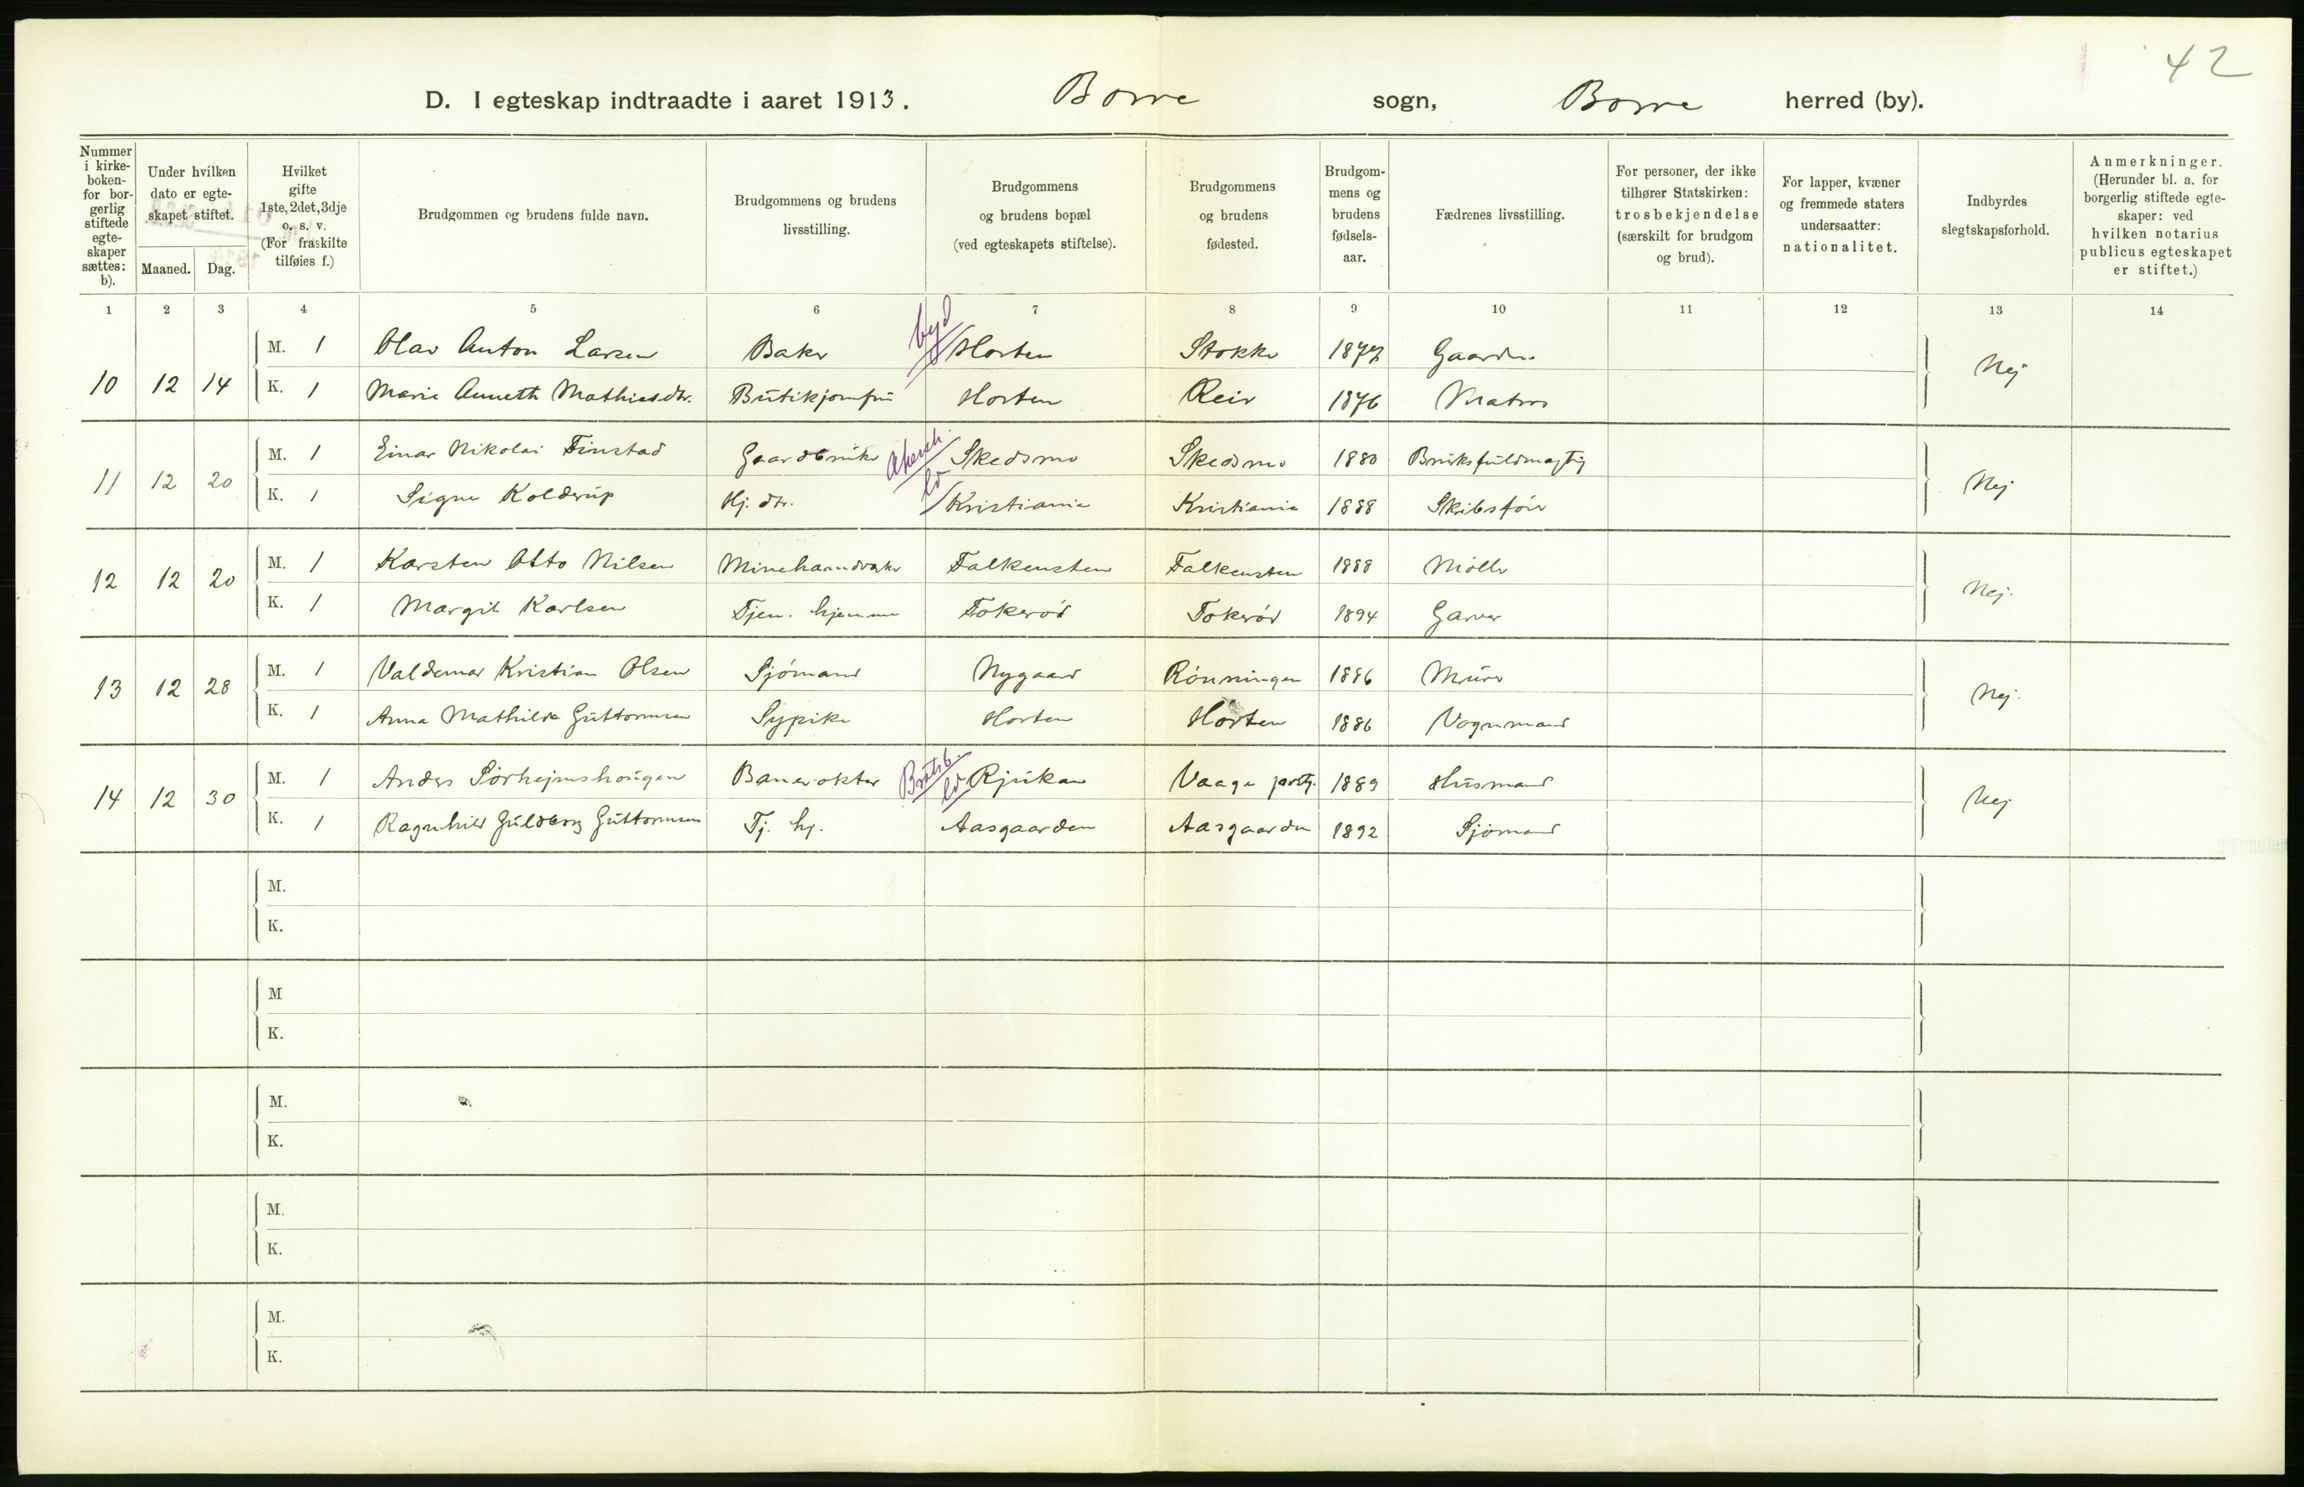 42
D. I egteskap indtraadte i aaret 1913. Borre sogn, Borre herred (by).
Nummer i kirke-boken- for bor-gerlig stiftede egte-skaper sættes: b).
Under hvilken dato er egte-skapet stiftet.
Maaned. Dag.
Hvilket gifte 1ste, 2det, 3dje o. s. v. (For fraskilte tilføies f.)
Brudgommen og brudens fulde navn.
Brudgommens og brudens livsstilling.
Brudgommens og brudens bopæl (ved egteskapets stiftelse).
Brudgommens og brudens fødested.
Brudgom-mens og brudens fødsels-aar.
Fædrenes livsstilling.
For personer, der ikke tilhører Statskirken: trosbekjendelse (særskilt for brudgom og brud).
For lapper, kvæner og fremmede staters undersaatter: nationalitet.
Indbyrdes slegtskapsforhold.
Anmerkninger. (Herunder bl. a. for borgerlig stiftede egte-skaper: ved hvilken notarius publicus egteskapet er stiftet.)
1 2 3 4 5 6 7 8 9 10 11 12 13 14
10 12 14 M. 1 Olav Anton Larsen Baker byd Horten Stokke 1877 Gaardbr. Nej
K. 1 Marie Annette Mathiesdtr. Butikjomfru Horten Reir 1876 Matros
11 12 20 M. 1 Einar Nikolai Finstad Gaardbruker Akersh. ld Skedsmo Skedsmo 1880 Bruksfuldmægtig Nej
K. 1 Signe Kolderup Hj. dtr. Kristiania Kristiania 1888 Skibsfører
12 12 20 M. 1 Karsten Otto Nilsen Minehaandverker Falkensten Falkensten 1888 Møller Nej.
K. 1 Margit Karlsen Tjen. hjemme Tokerød Tokerød 1894 Garver
13 12 28 M. 1 Valdemar Kristian Olsen Sjømand Nygaard Rønningen 1886 Murer Nej.
K. 1 Anna Mathilde Guttormsen Sypike Horten Horten 1886 Vognmand
14 12 30 M. 1 Anders Sørhejmshougen Banevokter Bratsb. ld Rjukan Vaage prstg. 1889 Husmand Nej
K. 1 Ragnhild Guldborg Guttormsen Tj. hj. Aasgaarden Aasgaarden 1892 Sjømand
M.
K.
M
K.
M.
K.
M.
K.
M.
K.